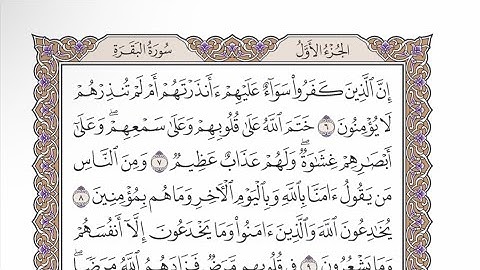 الجُزْءُ الأَوَّلُ
سُورَةُ البَقَرَةِ
إِنَّ ٱلَّذِينَ كَفَرُواْ سَوَآءٌ عَلَيْهِمْ ءَأَنذَرْتَهُمْ أَمْ لَمْ تُنذِرْهُمْ
لَا يُؤْمِنُونَ ٦ خَتَمَ ٱللَّهُ عَلَىٰ قُلُوبِهِمْ وَعَلَىٰ سَمْعِهِمْۖ وَعَلَىٰٓ
أَبْصَٰرِهِمْ غِشَٰوَةٌۖ وَلَهُمْ عَذَابٌ عَظِيمٌ ٧ وَمِنَ ٱلنَّاسِ
مَن يَقُولُ ءَامَنَّا بِٱللَّهِ وَبِٱلْيَوْمِ ٱلْأٓخِرِ وَمَا هُم بِمُؤْمِنِينَ ٨
يُخَٰدِعُونَ ٱللَّهَ وَٱلَّذِينَ ءَامَنُواْ وَمَا يَخْدَعُونَ إِلَّآ أَنفُسَهُمْ
وَمَا يَشْعُرُونَ ٩ فِى قُلُوبِهِم مَّرَضٌ فَزَادَهُمُ ٱللَّهُ مَرَضًاۖ